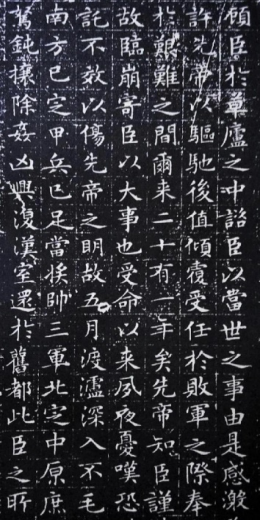 顧臣於草廬之中諮臣以當世之事由是感激
許先帝以驅馳後值傾覆受任於敗軍之際奉
於艱難之間爾来二十有一年矣先帝知臣謹
故臨崩寄臣以大事也受命以来夙夜憂嘆恐
託不效以傷先帝之明故五月渡瀘深入不毛
南方已定甲兵已足當獎帥三軍北定中原庶
駑鈍攘除姦凶興復漢室還於舊都此臣之所